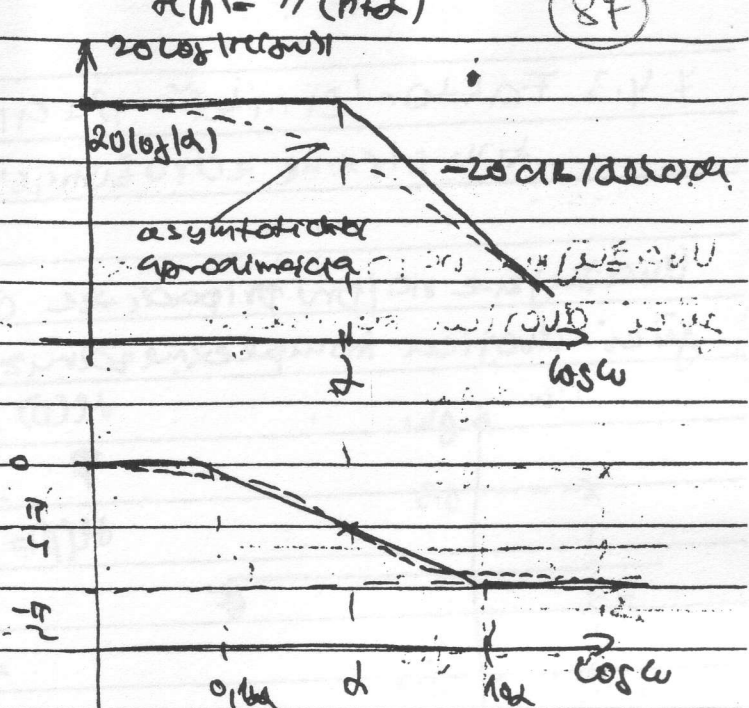 H(p) = 1/(p+α)
87
20 log |H(jω)|
20 log |α|
-20 dB/dekada
asymptotička
aproximacija
α
log ω
0
π/4
-π/2
0,1α
α
10α
log ω